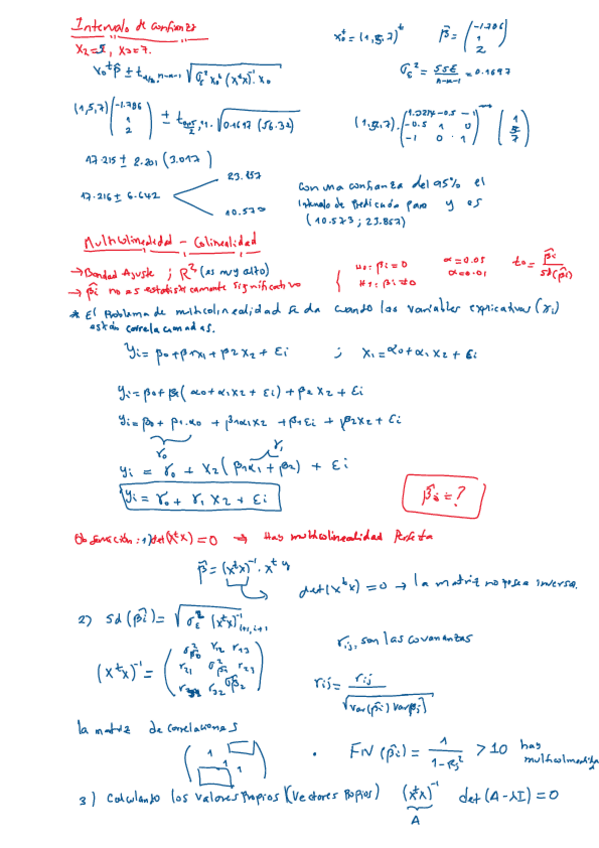 Intervalo de confianza
x₂=5, x₃=7.
x₀ᵗ = (1,5,7)ᵗ   β̂ = (-1.786 1 2)
x₀ᵗβ̂ ± t α/2, n-k-1 √(σε² x₀ᵗ (xᵗx)⁻¹ · x₀)
σε² = SSE/(n-k-1) = 0.1697
(1,5,7) (-1.786 1 2) ± t
17.215 ± 2.201 (3.017)
23.857
17.216 ± 6.642
10.573
Con una confianza del 95% el
intervalo de predicción para y es
(10.573; 23.857)
Multicolinealidad - Colinealidad
→ Bondad Ajuste ; R² (es muy alto)
→ β̂i no es estadísticamente significativo
{ H0: βi = 0   α = 0.05   t0 = β̂i / sd(β̂i)
H1: βi ≠ 0   α = 0.01
* El Problema de multicolinealidad se da cuando las variables explicativas (xi)
están correlacionadas.
yi = β0 + β1x1 + β2x2 + εi   ;   x1 = α0 + α1x2 + εi
yi = β0 + β1(α0 + α1x2 + εi) + β2x2 + εi
yi = β0 + β1·α0 + β1α1x2 + β1εi + β2x2 + εi
γ0   γ1
yi = γ0 + x2(β1α1 + β2) + εi
yi = γ0 + γ1 x2 + εi   β̂i = ?
Observación: 1) det(xᵗx) = 0 → Hay multicolinealidad Perfecta
β̂ = (xᵗx)⁻¹ · xᵗy
det(xᵗx) = 0 → la matriz no posee inversa.
2) sd(β̂i) = √(σε² (xᵗx)⁻¹ i+1,i+1)
rij, son las covarianzas
(xᵗx)⁻¹ =
rij = rij / √(var(β̂i) var β̂j)
la matriz de correlaciones
(1 1 1) . FIV (β̂i) = 1/(1-Rj²) > 10 hay
multicolinealidad
3) Calculando los valores Propios (Vectores Propios) (xᵗx)⁻¹ det(A-λI) = 0
A